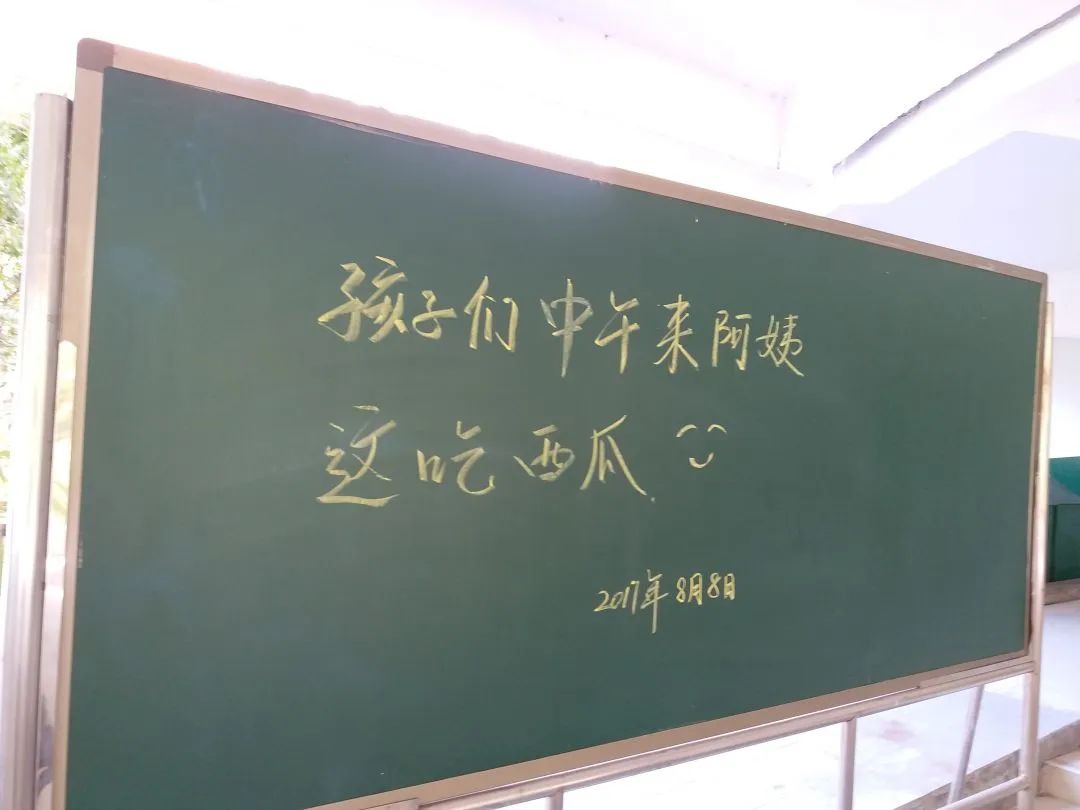 孩子们中午来阿姨
这吃西瓜.
2017年8月8日